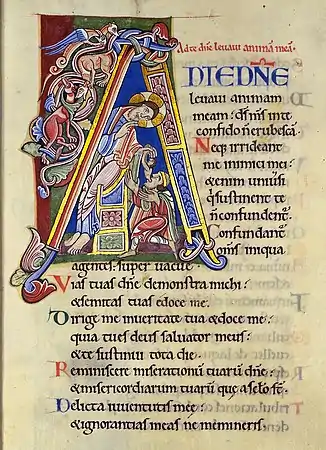 Ad te dñe levavi animã meã.
AD TE DÑE
levavi animam
meam: dſ mſ inte
confido ñ erubescã.
Neq; irrideant
me inimici mei:
& enim univſi
q̃ sustinent te
ñ confundent̃.
Confundant̃
om̃s iniqua
agentes: super vacue.
Vias tuas dñe demonstra michi:
& semitas tuas edoce me.
Dirige me inveritate tua & doce me:
quia tu es deus salvator meus:
& te sustinui tota die.
Reminiscere miserationũ tuarũ dñe:
& misericordiarum tuarũ que a sc̃lo s̃t.
Delicta iuventutis meę:
& ignorantias meas ne memineris.